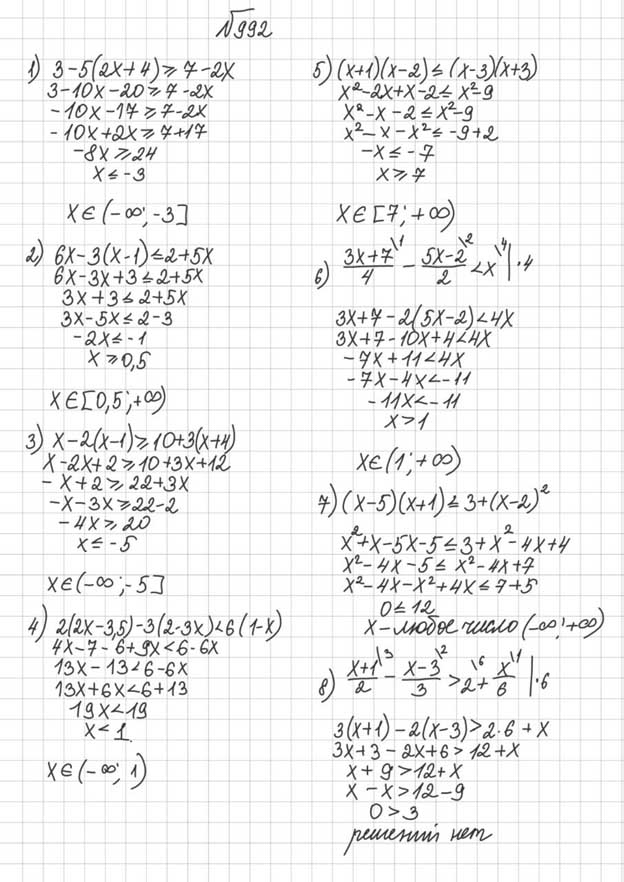 №992
1) 3-5(2x+4)⩾7-2x
3-10x-20⩾7-2x
-10x-17⩾7-2x
-10x+2x⩾7+17
-8x⩾24
x⩽-3
x∈(-∞;-3]
2) 6x-3(x-1)⩽2+5x
6x-3x+3⩽2+5x
3x+3⩽2+5x
3x-5x⩽2-3
-2x⩽-1
x⩾0,5
x∈[0,5;+∞)
3) x-2(x-1)⩾10+3(x+4)
x-2x+2⩾10+3x+12
-x+2⩾22+3x
-x-3x⩾22-2
-4x⩾20
x⩽-5
x∈(-∞;-5]
4) 2(2x-3,5)-3(2-3x)<6(1-x)
4x-7-6+9x<6-6x
13x-13<6-6x
13x+6x<6+13
19x<19
x<1
x∈(-∞;1)
5) (x+1)(x-2)⩽(x-3)(x+3)
x²-2x+x-2⩽x²-9
x²-x-2⩽x²-9
x²-x-x²⩽-9+2
-x⩽-7
x⩾7
x∈[7;+∞)
6) (3x+7)/4 \1 - (5x-2)/2 \2 < x \4 | ·4
3x+7-2(5x-2)<4x
3x+7-10x+4<4x
-7x+11<4x
-7x-4x<-11
-11x<-11
x>1
x∈(1;+∞)
7) (x-5)(x+1)⩽3+(x-2)²
x²+x-5x-5⩽3+x²-4x+4
x²-4x-5⩽x²-4x+7
x²-4x-x²+4x⩽7+5
0⩽12
x-любое число (-∞;+∞)
8) (x+1)/2 \3 - (x-3)/3 \2 > 2 \6 + x/6 \1 | ·6
3(x+1)-2(x-3)>2·6+x
3x+3-2x+6>12+x
x+9>12+x
x-x>12-9
0>3
решений нет